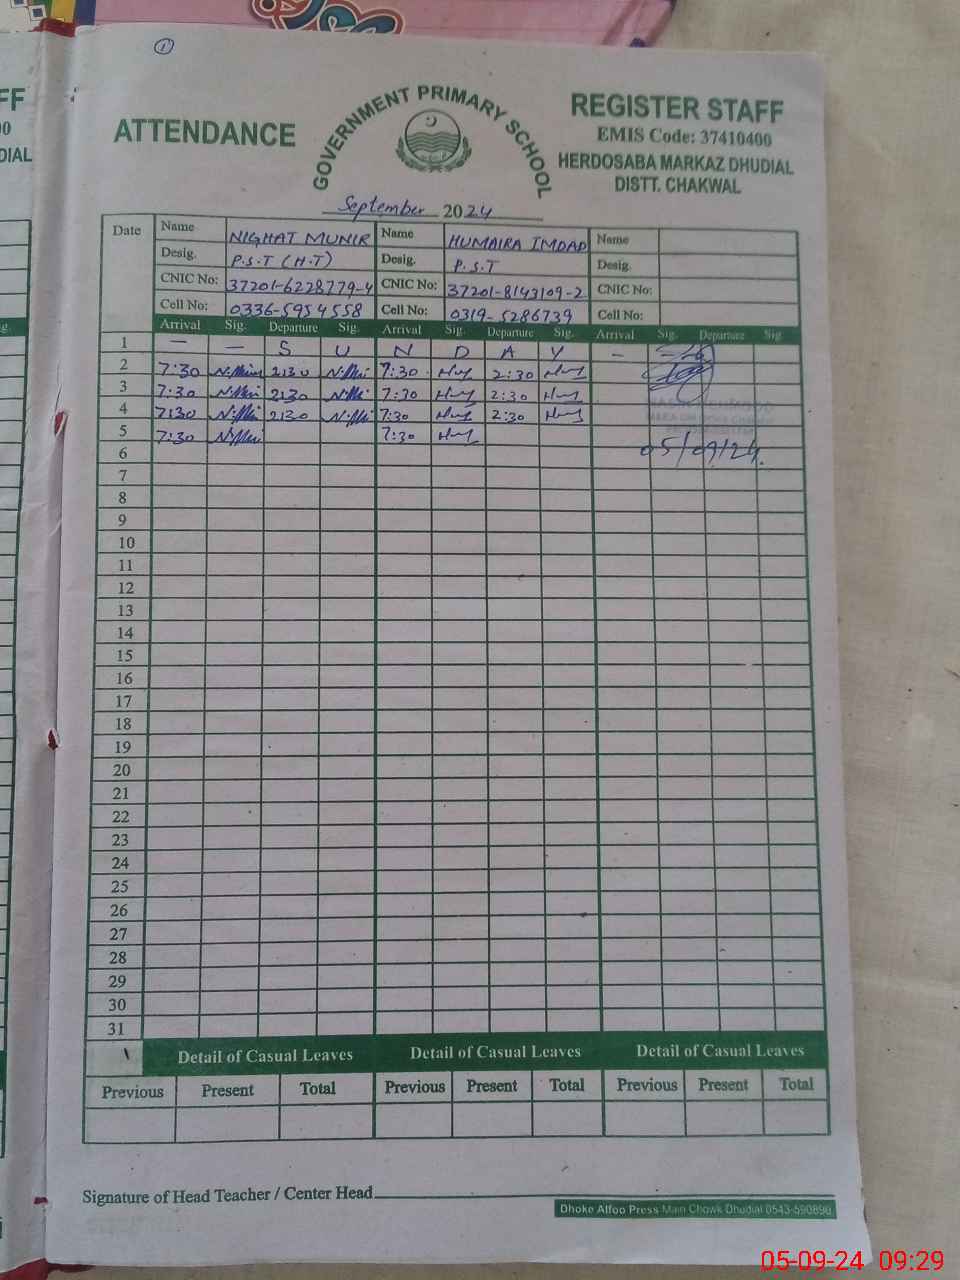 1
ATTENDANCE
GOVERNMENT PRIMARY SCHOOL
REGISTER STAFF
EMIS Code: 37410400
HERDOSABA MARKAZ DHUDIAL
DISTT. CHAKWAL
September 2024
Date Name NIGHAT MUNIR Name HUMAIRA IMDAD Name
Desig. P.S.T (H.T) Desig. P.S.T Desig.
CNIC No: 37201-6228779-4 CNIC No: 37201-8143109-2 CNIC No:
Cell No: 0336-5954558 Cell No: 0319-5286739 Cell No:
Arrival Sig. Departure Sig. Arrival Sig. Departure Sig. Arrival Sig. Departure Sig.
1 — — S U N D A Y –
2 7:30 2:30 7:30 2:30
3 7:30 2:30 7:30 2:30
4 7:30 2:30 7:30 2:30
5 7:30 7:30
6 05/09/24.
7
8
9
10
11
12
13
14
15
16
17
18
19
20
21
22
23
24
25
26
27
28
29
30
31
Detail of Casual Leaves Detail of Casual Leaves Detail of Casual Leaves
Previous Present Total Previous Present Total Previous Present Total
Signature of Head Teacher / Center Head
Dhoke Alfoo Press Main Chowk Dhudial 0543-590890
05-09-24 09:29